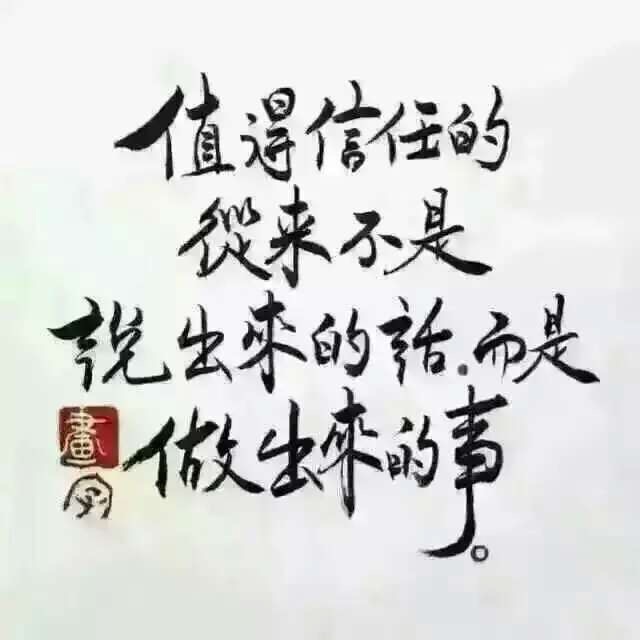 值得信任的
從来不是
說出來的話。而是
做出來的事。
畫
字